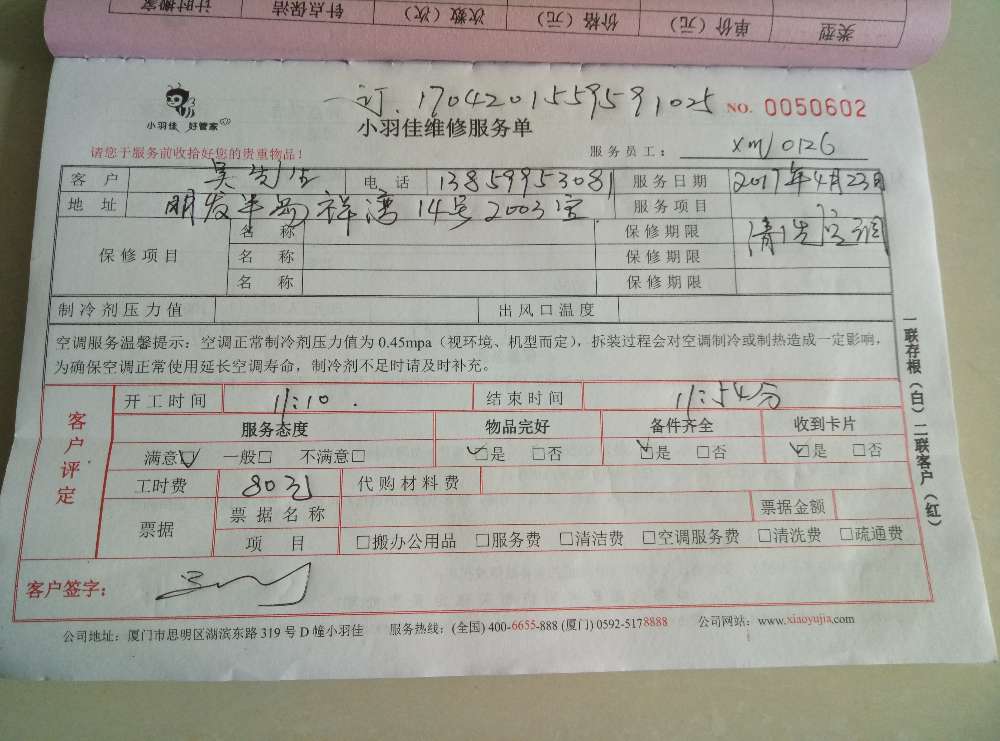 类型 单价（元） 价格（元） 次数（次） 钟点保洁 计时搬家
订.1704201559591025
小羽佳 好管家
小羽佳维修服务单
NO. 0050602
请您于服务前收拾好您的贵重物品！
服务员工： xm/0126
客户 吴先生 电话 13859953081 服务日期 2017年4月23日
地址 明发半岛祥湾14号2003室 服务项目 清洗空调
保修项目 名称 保修期限
名称 保修期限
名称 保修期限
制冷剂压力值 出风口温度
空调服务温馨提示：空调正常制冷剂压力值为0.45mpa（视环境、机型而定），拆装过程会对空调制冷或制热造成一定影响，
为确保空调正常使用延长空调寿命，制冷剂不足时请及时补充。
客户评定
开工时间 11:10. 结束时间 11:54分
服务态度 物品完好 备件齐全 收到卡片
满意☑ 一般□ 不满意□ ☑是 □否 ☑是 □否 ☑是 □否
工时费 80元 代购材料费
票据 票据名称 票据金额
项目 □搬办公用品 □服务费 □清洁费 □空调服务费 □清洗费 □疏通费
客户签字：
公司地址：厦门市思明区湖滨东路319号D幢小羽佳 服务热线：(全国) 400-6655-888 (厦门) 0592-5178888 公司网站：www.xiaoyujia.com
一联存根（白）二联客户（红）